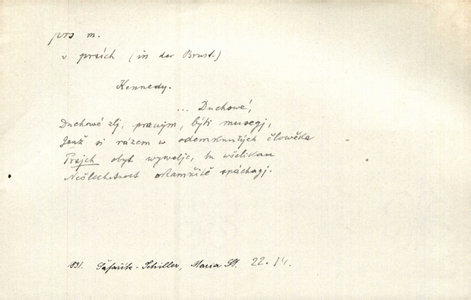 prs m.
v prsích (in der Brust.)
Kennedy.
... Duchowé,
Duchowé zlj, prawjm, býti musegj,
Genž si rázem w odemknutých člowěka
Prsjch obyt wywolje, tu wšelikau
Nešlechetnost okamžitě spáchagj.
Šafařík-Schiller, Maria St. 22.14.